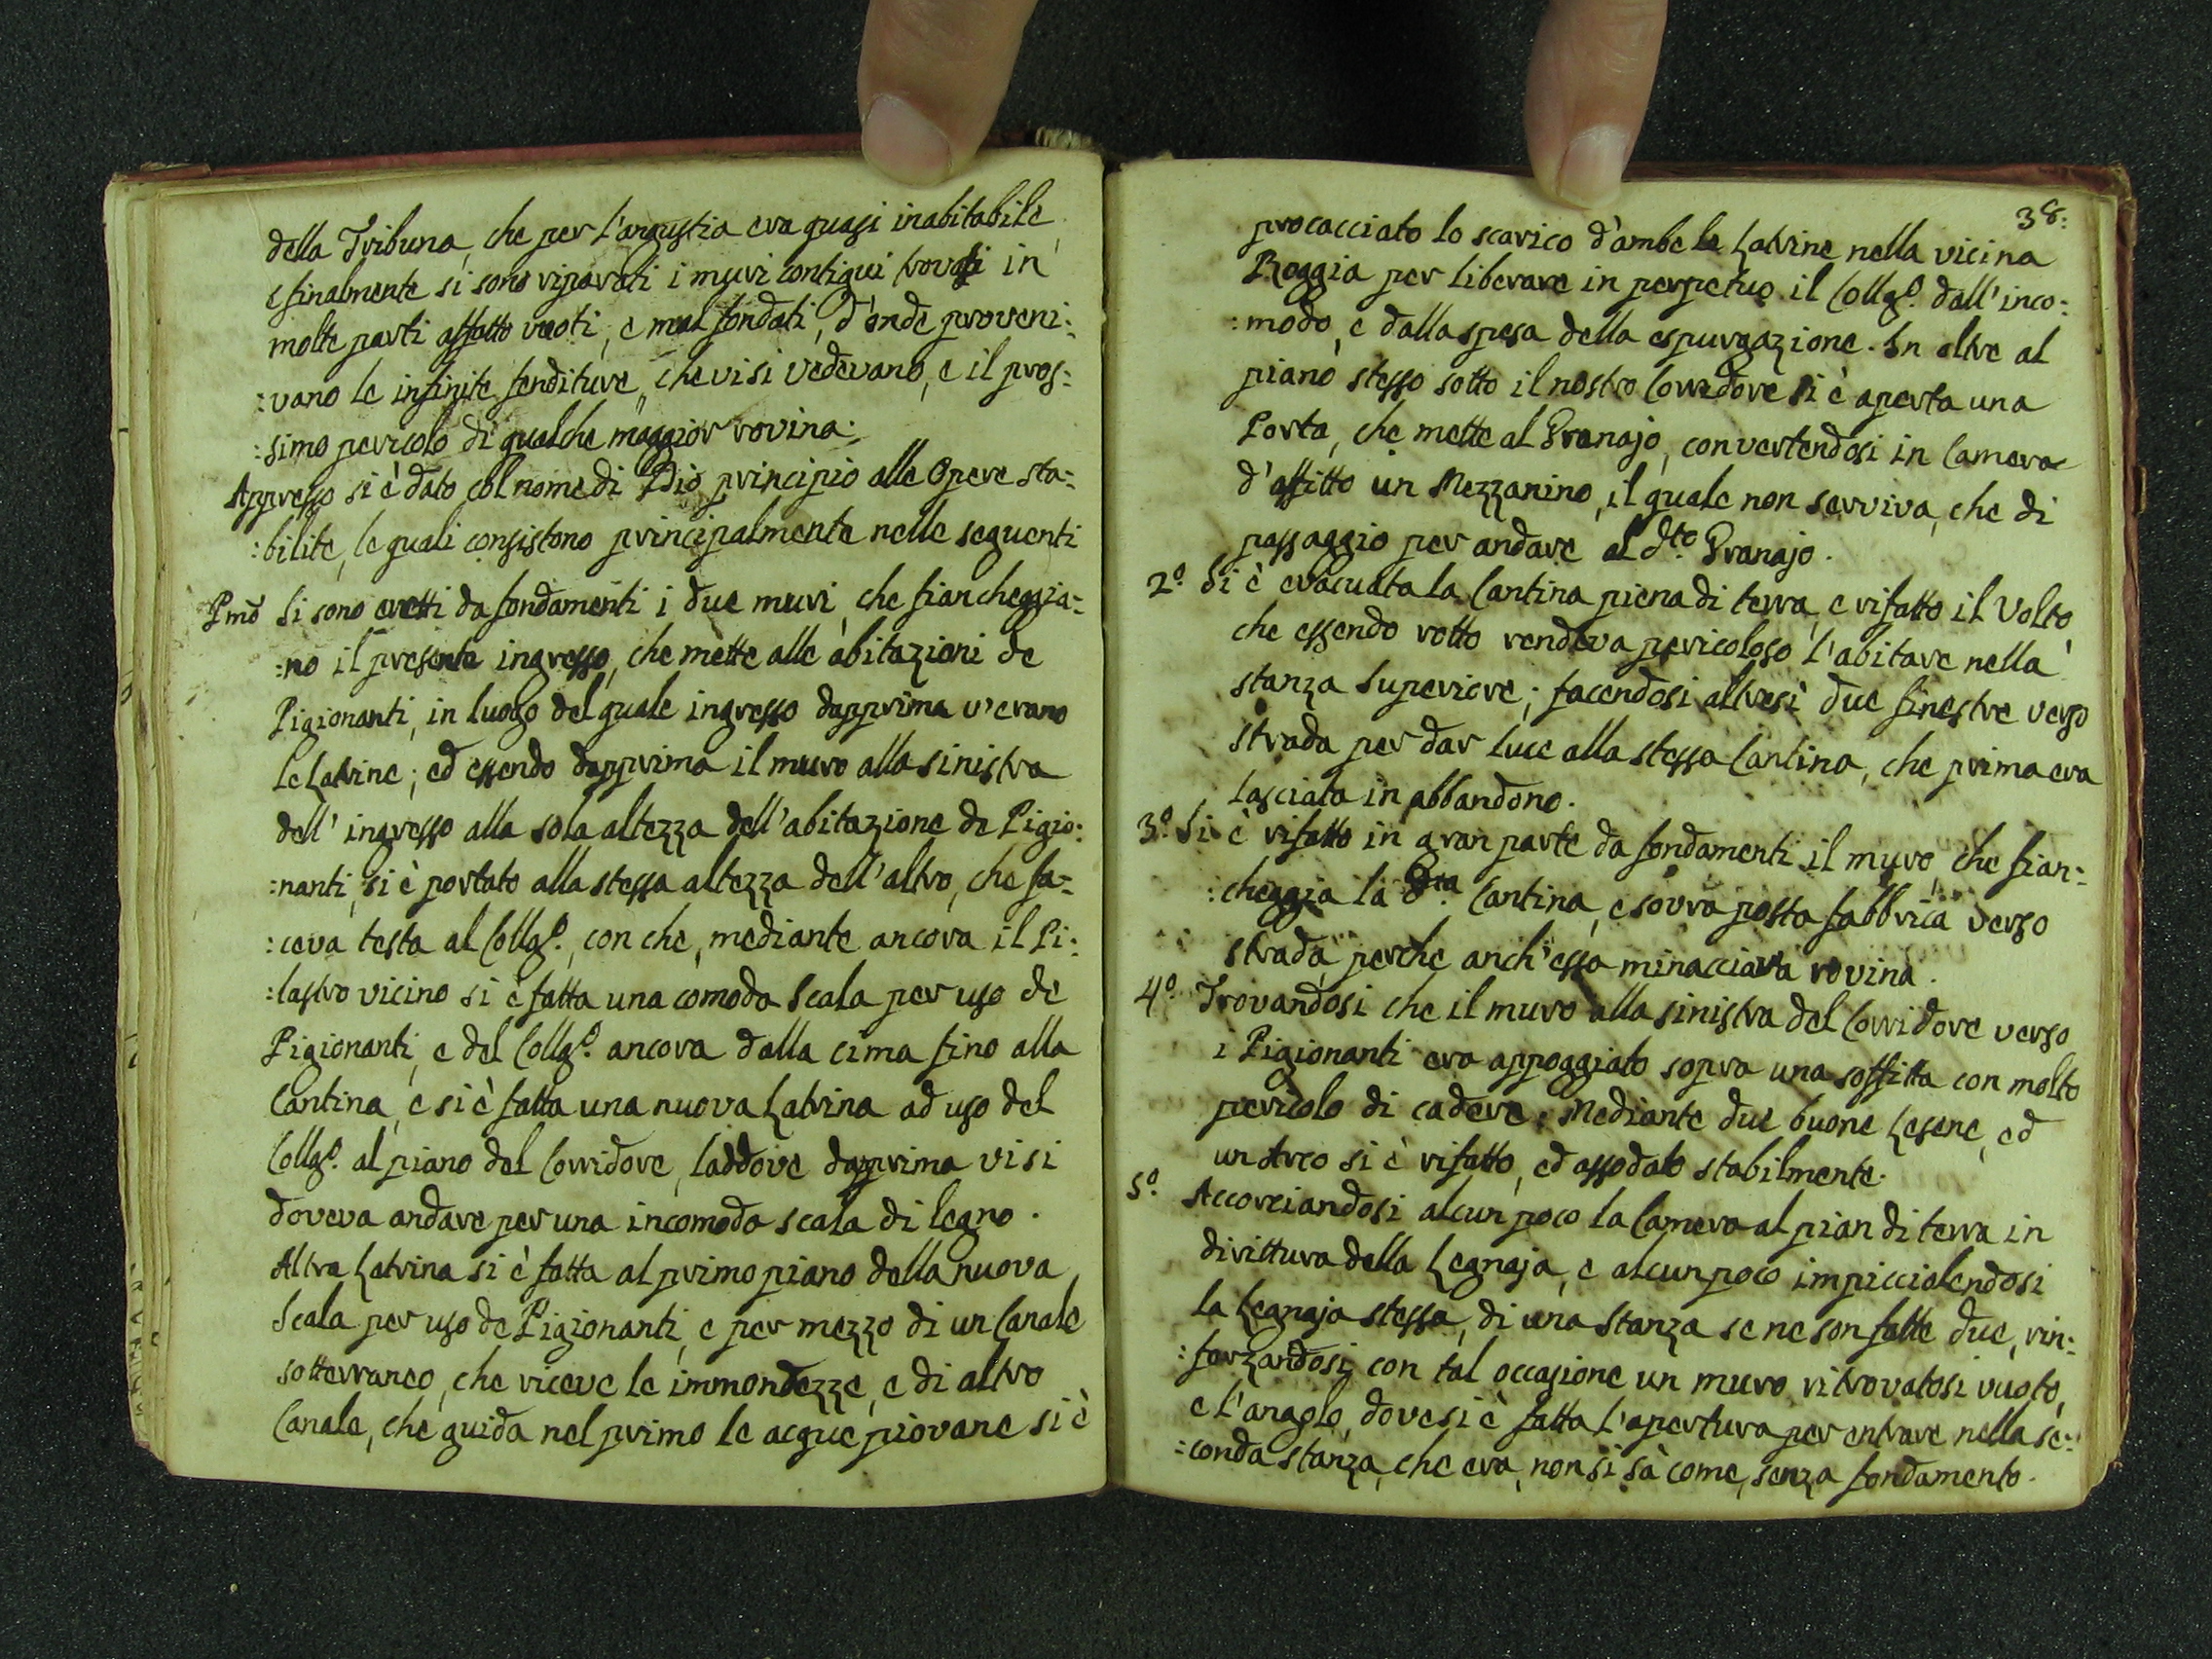 della Tribuna, che per l'angustia era quasi inabitabile,
e finalmente si sono riparati i muri contigui trovati in
molte parti affatto vuoti, e mal fondati, d'onde proveni:
:vano le infinite fenditure, che vi si vedevano, e il pros:
:simo pericolo di qualche maggior rovina:
Appresso si è dato col nome di Dio principio alle Opere sta:
:bilite, le quali consistono principalmente nelle seguenti
Pmo Si sono eretti da fondamenti i due muri, che fiancheggia:
:no il presente ingresso, che mette alle abitazioni de
Pigionanti, in luogo del quale ingresso dapprima v'erano
le Latrine; ed essendo dapprima il muro alla sinistra
dell' ingresso alla sola altezza dell'abitazione de Pigio:
:nanti, si è portato alla stessa altezza dell'altro, che fa:
:ceva testa al Collgo., con che, mediante ancora il Pi:
:lastro vicino si è fatta una comoda Scala per uso de
Pigionanti, e del Collgo. ancora dalla cima fino alla
Cantina, e si è fatta una nuova Latrina ad uso del
Collgo. al piano del Corridore, laddove dapprima vi si
doveva andare per una incomoda scala di legno.
Altra Latrina si è fatta al primo piano della nuova
Scala per uso de Pigionanti, e per mezzo di un Canale
sotterraneo, che riceve le immondezze, e di altro
Canale, che guida nel primo le acque piovane si è
38:
procacciato lo scarico d'ambe le Latrine nella vicina
Roggia per liberare in perpetuo il Collgo. dall'inco:
:modo, e dalla spesa della espurgazione. In oltre al
piano stesso sotto il nostro Corridore si è aperta una
Porta, che mette al Granajo, convertendosi in Camera
d'affitto un Mezzanino, il quale non serviva, che di
passaggio per andare al dto. Granajo.
2o. Si è evacuata la Cantina piena di terra, e rifatto il Volto,
che essendo rotto rendeva pericoloso l'abitare nella
stanza Superiore; facendosi altresì due finestre verso
strada per dar luce alla stessa Cantina, che prima era
lasciata in abbandono.
3o. Si è rifatto in gran parte da fondamenti il muro, che fian:
:cheggia la dta. Cantina, e sovra posta fabbrica verso
strada, perche anch'esso minacciava rovina.
4o. Trovandosi che il muro alla sinistra del Corridore verso
i Pigionanti era appoggiato sopra una soffitta con molto
pericolo di cadere, Mediante due buone Lesene, ed
un Arco si è rifatto, ed assodato stabilmente.
5o. Accorciandosi alcun poco la Camera al pian di terra in
dirittura della Legnaja, e alcun poco impicciolendosi
la Legnaja stessa, di una stanza se ne son fatte due, rin:
:forzandosi con tal occasione un muro ritrovatosi vuoto,
e l'angolo, dove si è fatta l'apertura per entrare nella se:
:conda stanza, che era, non si sà come, senza fondamento.